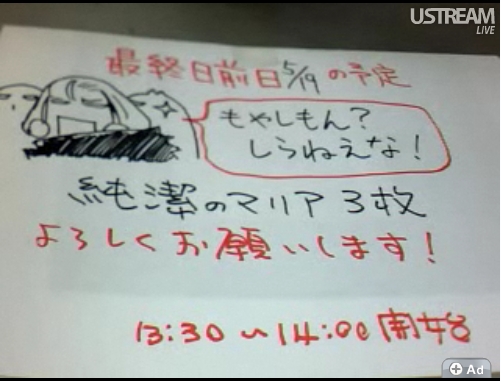 USTREAM
LIVE
最終日前日5/19の予定
もやしもん?
しらねえな!
純潔のマリア 3枚
よろしくお願いします!
13:30〜14:00 開始
+ Ad